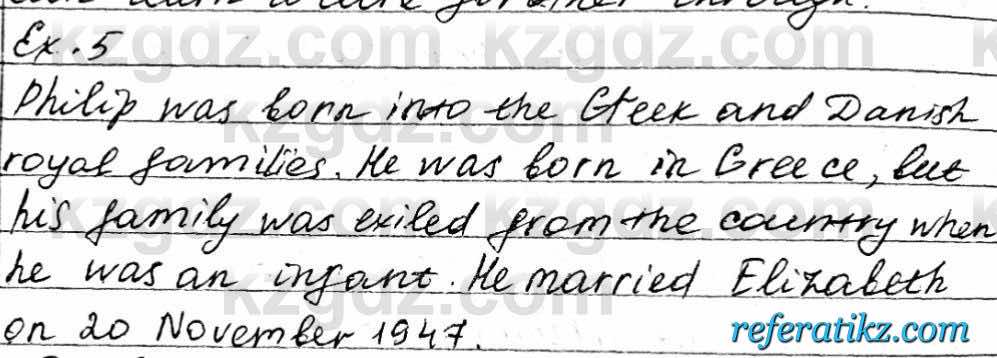 Ex. 5
Philip was born into the Greek and Danish
royal families. He was born in Greece, but
his family was exiled from the country when
he was an infant. He married Elizabeth
on 20 November 1947.
kzgdz.com
referatikz.com